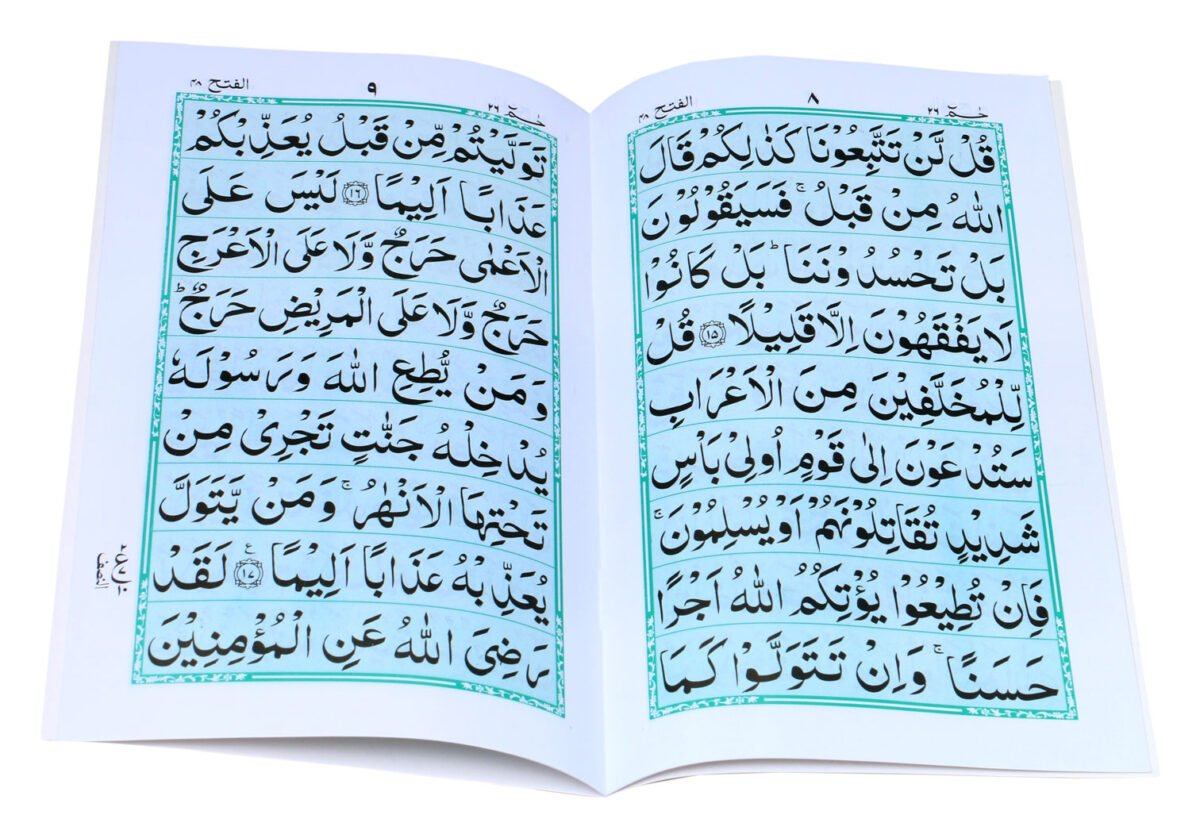 حٰمٓ ٢٦
٨
الفتح ٤٨
قُلْ لَّنْ تَتَّبِعُوْنَا كَذٰلِكُمْ قَالَ
اللّٰهُ مِنْ قَبْلُ ۚ فَسَيَقُوْلُوْنَ
بَلْ تَحْسُدُوْنَنَا ؕ بَلْ كَانُوْا
لَا يَفْقَهُوْنَ اِلَّا قَلِيْلًا ﴿١٥﴾ قُلْ
لِّلْمُخَلَّفِيْنَ مِنَ الْاَعْرَابِ
سَتُدْعَوْنَ اِلٰى قَوْمٍ اُولِىْ بَاْسٍ
شَدِيْدٍ تُقَاتِلُوْنَهُمْ اَوْ يُسْلِمُوْنَ ۚ
فَاِنْ تُطِيْعُوْا يُؤْتِكُمُ اللّٰهُ اَجْرًا
حَسَنًا ۚ وَاِنْ تَتَوَلَّوْا كَمَا
حٰمٓ ٢٦
٩
الفتح ٤٨
تَوَلَّيْتُمْ مِّنْ قَبْلُ يُعَذِّبْكُمْ
عَذَابًا اَلِيْمًا ﴿١٦﴾ لَيْسَ عَلَى
الْاَعْمٰى حَرَجٌ وَّلَا عَلَى الْاَعْرَجِ
حَرَجٌ وَّلَا عَلَى الْمَرِيْضِ حَرَجٌ ؕ
وَمَنْ يُّطِعِ اللّٰهَ وَرَسُوْلَهٗ
يُدْخِلْهُ جَنّٰتٍ تَجْرِىْ مِنْ
تَحْتِهَا الْاَنْهٰرُ ۚ وَمَنْ يَّتَوَلَّ
يُعَذِّبْهُ عَذَابًا اَلِيْمًا ﴿١٧﴾ لَقَدْ
رَضِىَ اللّٰهُ عَنِ الْمُؤْمِنِيْنَ